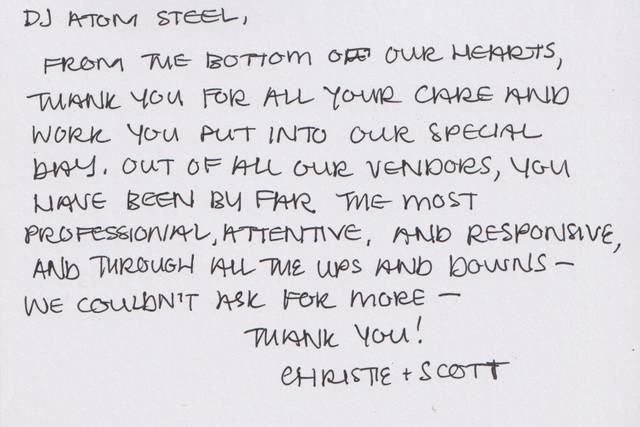 DJ ATOM STEEL,
FROM THE BOTTOM OF OUR HEARTS,
THANK YOU FOR ALL YOUR CARE AND
WORK YOU PUT INTO OUR SPECIAL
DAY. OUT OF ALL OUR VENDORS, YOU
HAVE BEEN BY FAR THE MOST
PROFESSIONAL, ATTENTIVE, AND RESPONSIVE,
AND THROUGH ALL THE UPS AND DOWNS —
WE COULDN'T ASK FOR MORE —
THANK YOU!
CHRISTIE + SCOTT